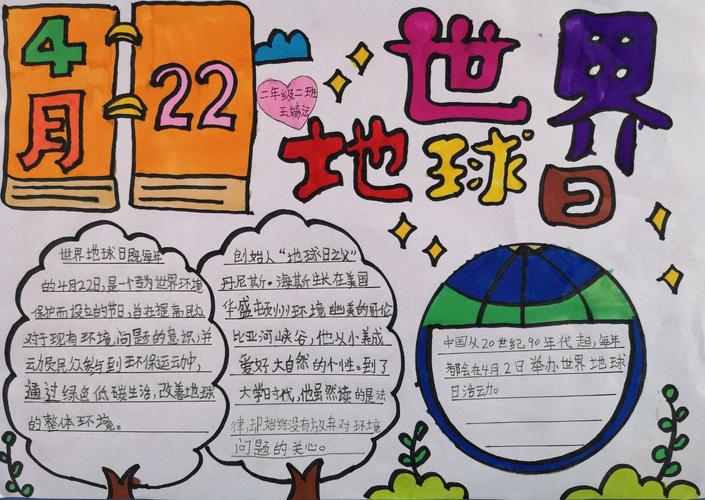 4月 22
世界
地球日
二年级二班
王婧
世界地球日既每年
的4月22日,是一个专为世界环境
保护而设立的节日,旨在提高民众
对于现有环境问题的意识,并
动员民众参与到环保运动中,
通过绿色低碳生活,改善地球
的整体环境。
创始人“地球日之父”
丹尼斯·海斯生长在美国
华盛顿州环境幽美的哥伦
比亚河峡谷,他从小养成
爱好大自然的个性。到了
大学时代,他虽然读的是法
律,却始终没有放弃对环境
问题的关心。
中国从20世纪90年代起,每年
都会在4月2日举办世界地球
日活动。